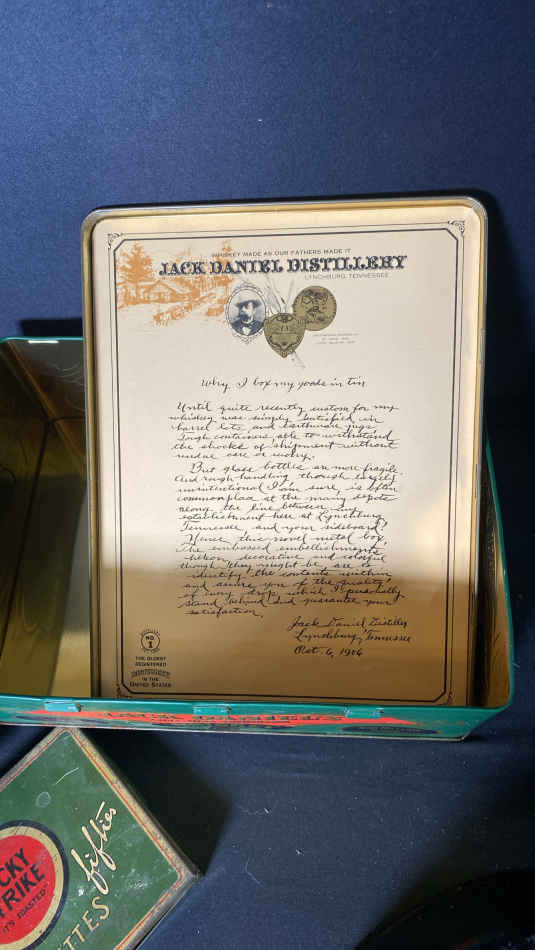 WHISKEY MADE AS OUR FATHERS MADE IT
JACK DANIEL DISTILLERY
LYNCHBURG, TENNESSEE
Why I box my goods in tin
Until quite recently custom for my
whiskey was simply satisfied in
barrel lots and earthenware jugs
Tough containers able to withstand
the shocks of shipment without
undue care or worry.
But glass bottles are more fragile.
And rough handling though largely
unintentional I am sure, is often
commonplace at the many stops
along the line between my
establishment here at Lynchburg
Tennessee and your sideboard!
Hence this novel metal box,
The embossed embellishments
hereon decorative and colorful
though they might be, are to
identify the contents within
and assure you of the quality
of every drop which I personally
stand behind and guarantee your
satisfaction.
Jack Daniel Distiller
Lynchburg, Tennessee
Oct. 6, 1904
NO.
1
THE OLDEST
REGISTERED
DISTILLERY
IN THE
UNITED STATES
JACK DANIEL'S
fifties
CKY
TRIKE
"IT'S TOASTED"
TTES